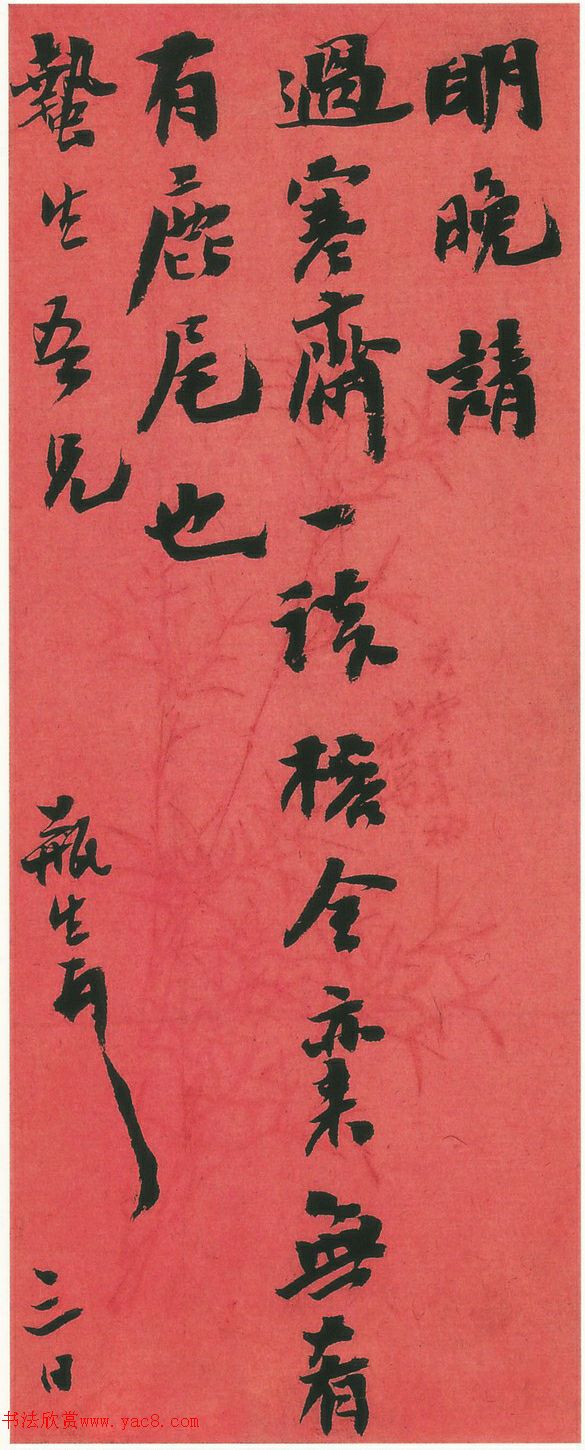 明晚請
過寒齋一談亦來無肴
有鹿尾也
蟄生吾兄
瓶生頓 三日
书法欣赏www.yac8.com